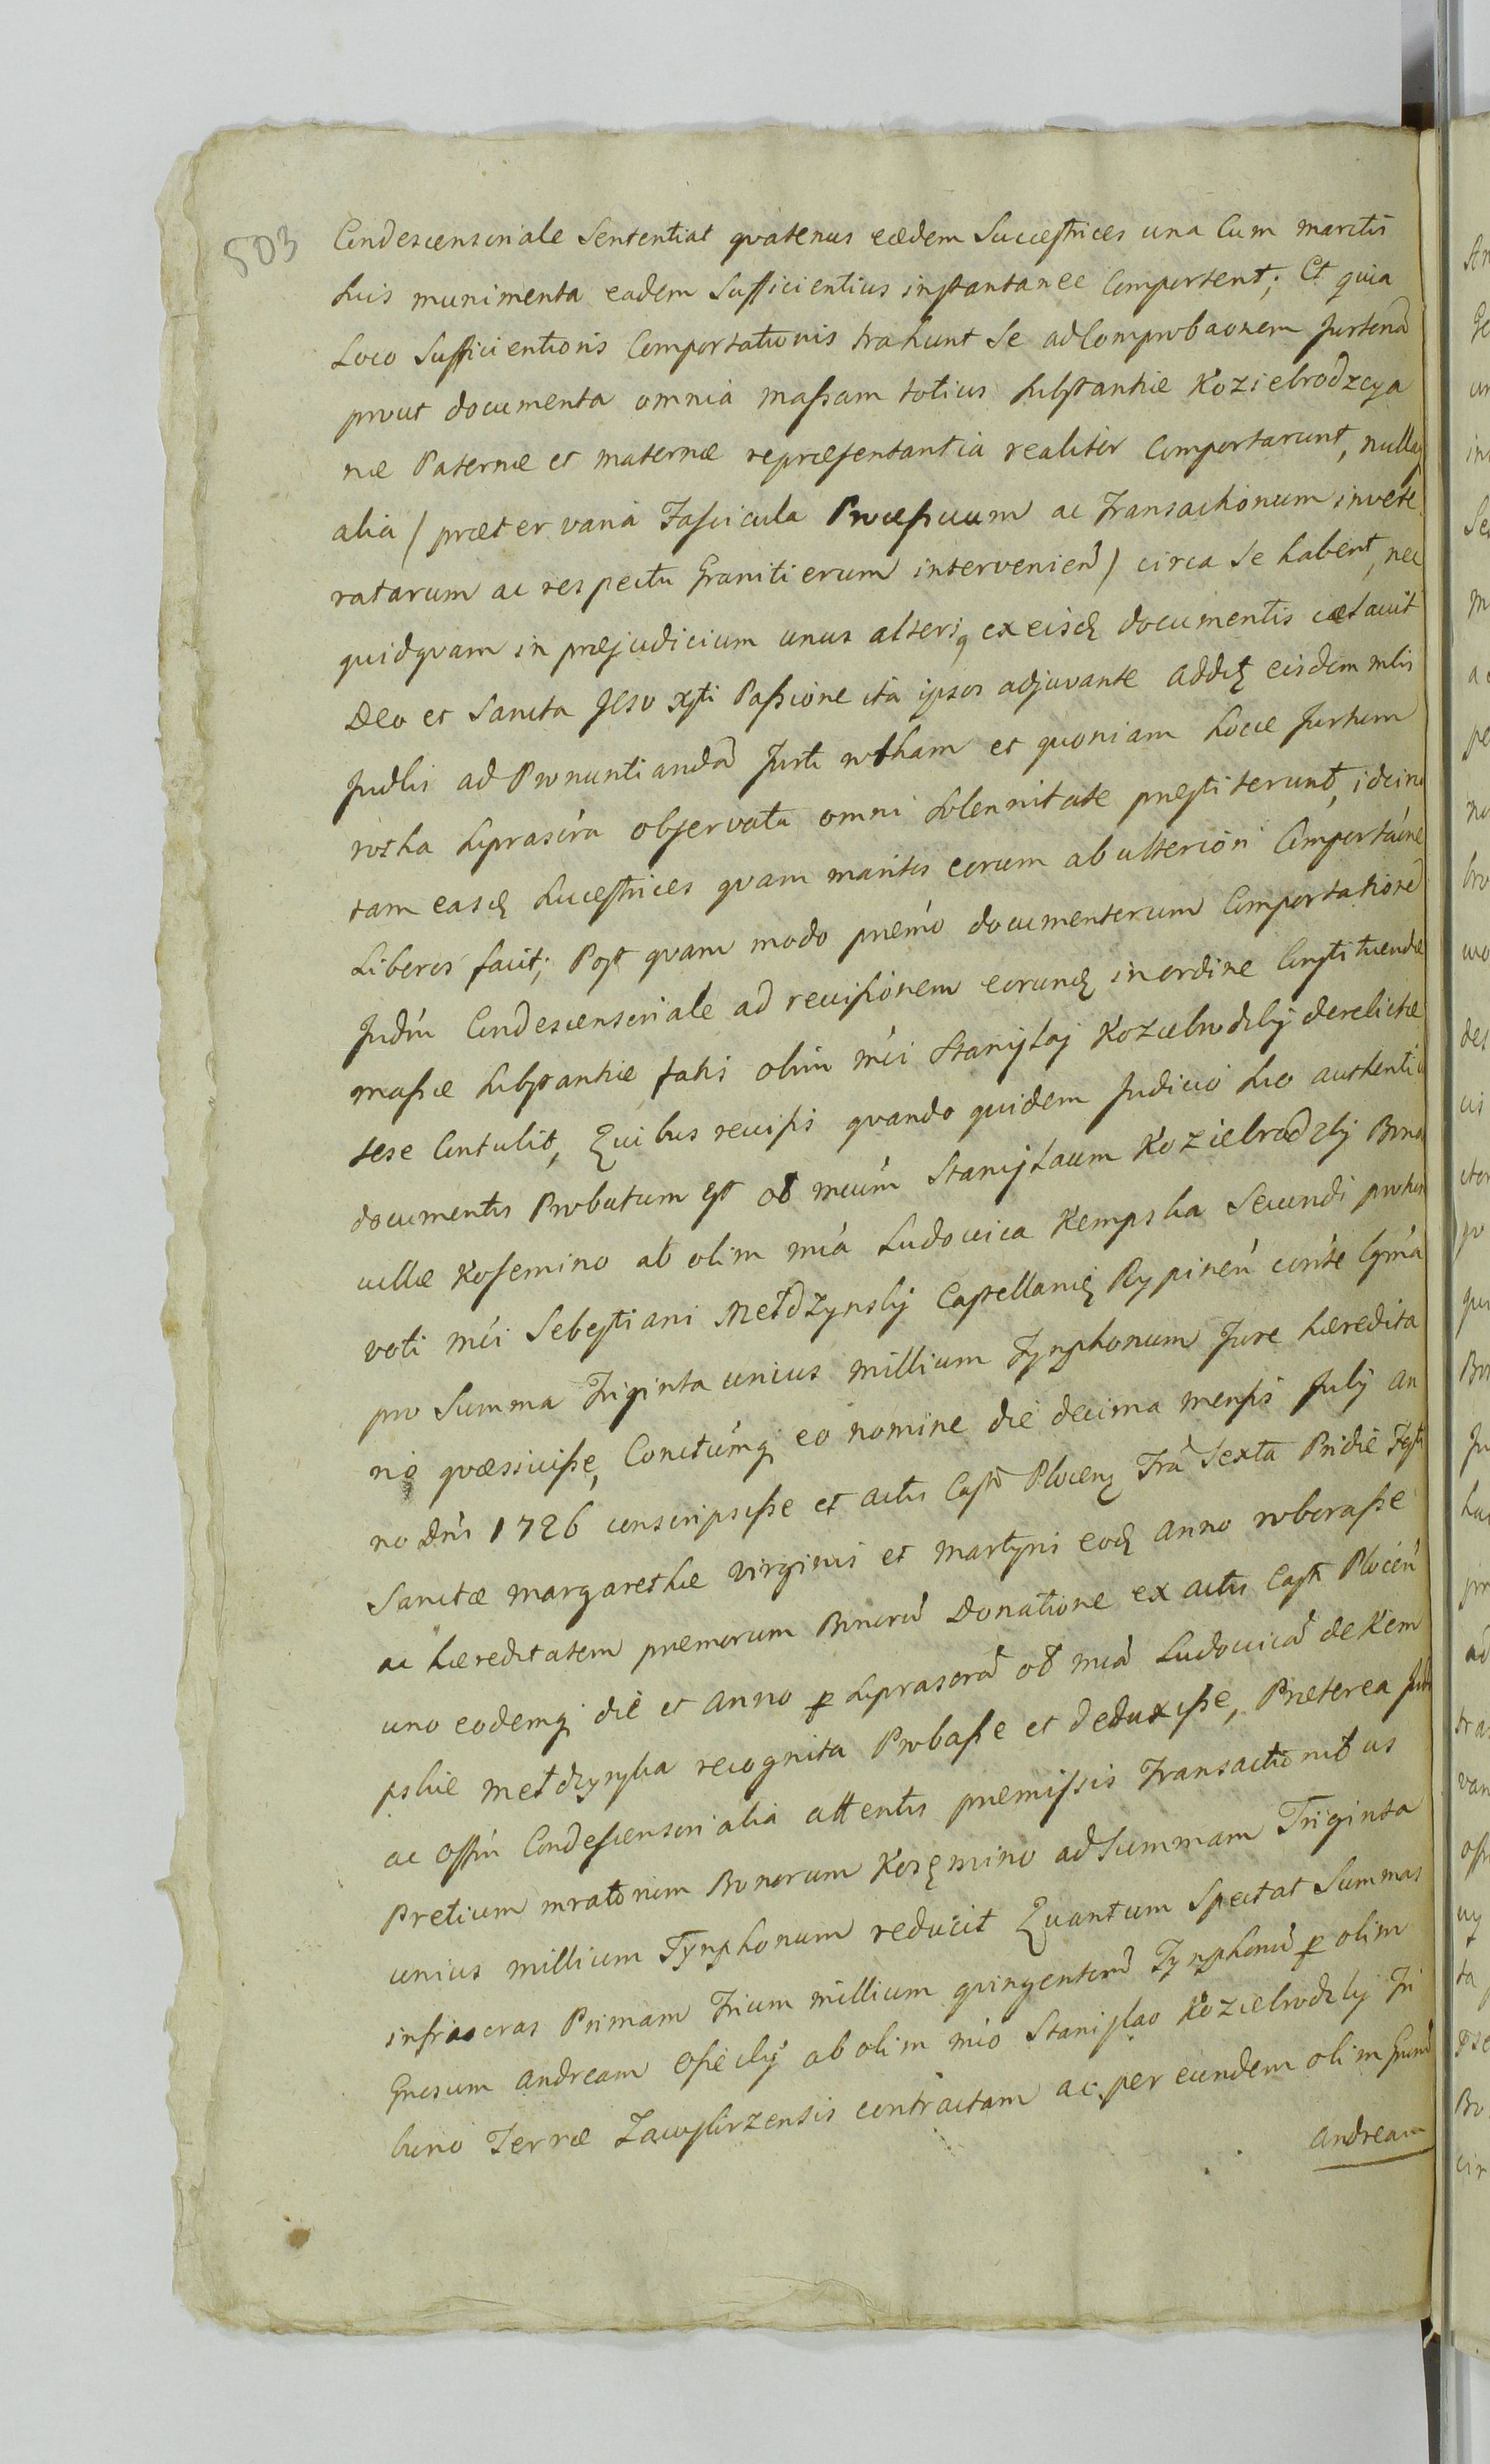 503
Condescensoriale Sententiat quatenus eædem Succestrices una Cum maritis
suis munimenta eadem Sufficientius instantanee Comportent; Et quia
Loco Sufficientioris Comportationis trahunt Se ad Comprobaonem Jurtoria
prout documenta omnia massam totius substantiæ Koziebrodzcya
næ Paternæ et maternæ repræsentantia realiter Comportarunt, nullaq
alia / præter varia Fascicula Processuum ac Transactionum invete
ratarum ac respectu Granitierum intervenien / circa Se habent, nec
quidquam in præjudicium unus alteriq ex eisdę documentis cœlavit
Deo et Sancta Jesu xsti Passione ita ipsos adjuvante addę eisdem mlis
Judlis ad Pronuntianda Jurti rotham et quoniam hocce Jurtum
rotha suprascra observata omni solennitate præstiterunt, idcirco
tam easdę successtrices quam maritos eorum ab ulteriori Comportaóne
Liberos facit; Post quam modo præmo documentorum Comportatione
Judm Condescensoriale ad revisionem eorundę in ordine Constituendæ
massæ substantiæ fatis olim mći Stanislaj Koziebrodzkij derelictæ
sese Contulit, Quibus revisis quando quidem Judicio huo authenti
documentis Probatum est ol mcum Stanislaum Koziebrodzkij Bona
villæ Kosemino ab olim mca Ludovica Kempska Secundi prohun
voti mći Sebestiani Metdzynskij Castellanię Rypineń conste lgma
pro Summa Triginta unius millium Tynphonum Jure hæredita
rio quæssivisse, Conctumq eo nomine die decima mensis Julij an
no Dni 1726 conscripsisse et actis Castr Plocenę Fra Sexta Pridie Fsti
Sanctæ margarethæ virginis et martyris eodę anno roborasse
ac hæreditatem præmorum Bonoru Donatione ex actis Castr Ploceń
uno eodemq die et anno p suprascra ol mca Ludovica de Kem
pskie metdzynska recognita Probasse et deduxisse, Præterea Jud
ac Offm Condescensorialia attentis præmissis Transactionibus
Pretium mratorum Bonorum Kosęmino ad Summam Triginta
unius millium Tynphonum reducit Quantum Spectat Summas
infrascras Primam Trium millium quingentoru Tynphonu p olim
Gnosum andream Osieckij ab olim mco Stanislao Koziebrodzkij Tri
buno Terræ Zawskrzensis contractam ac per eundem olim Gnsum
andream